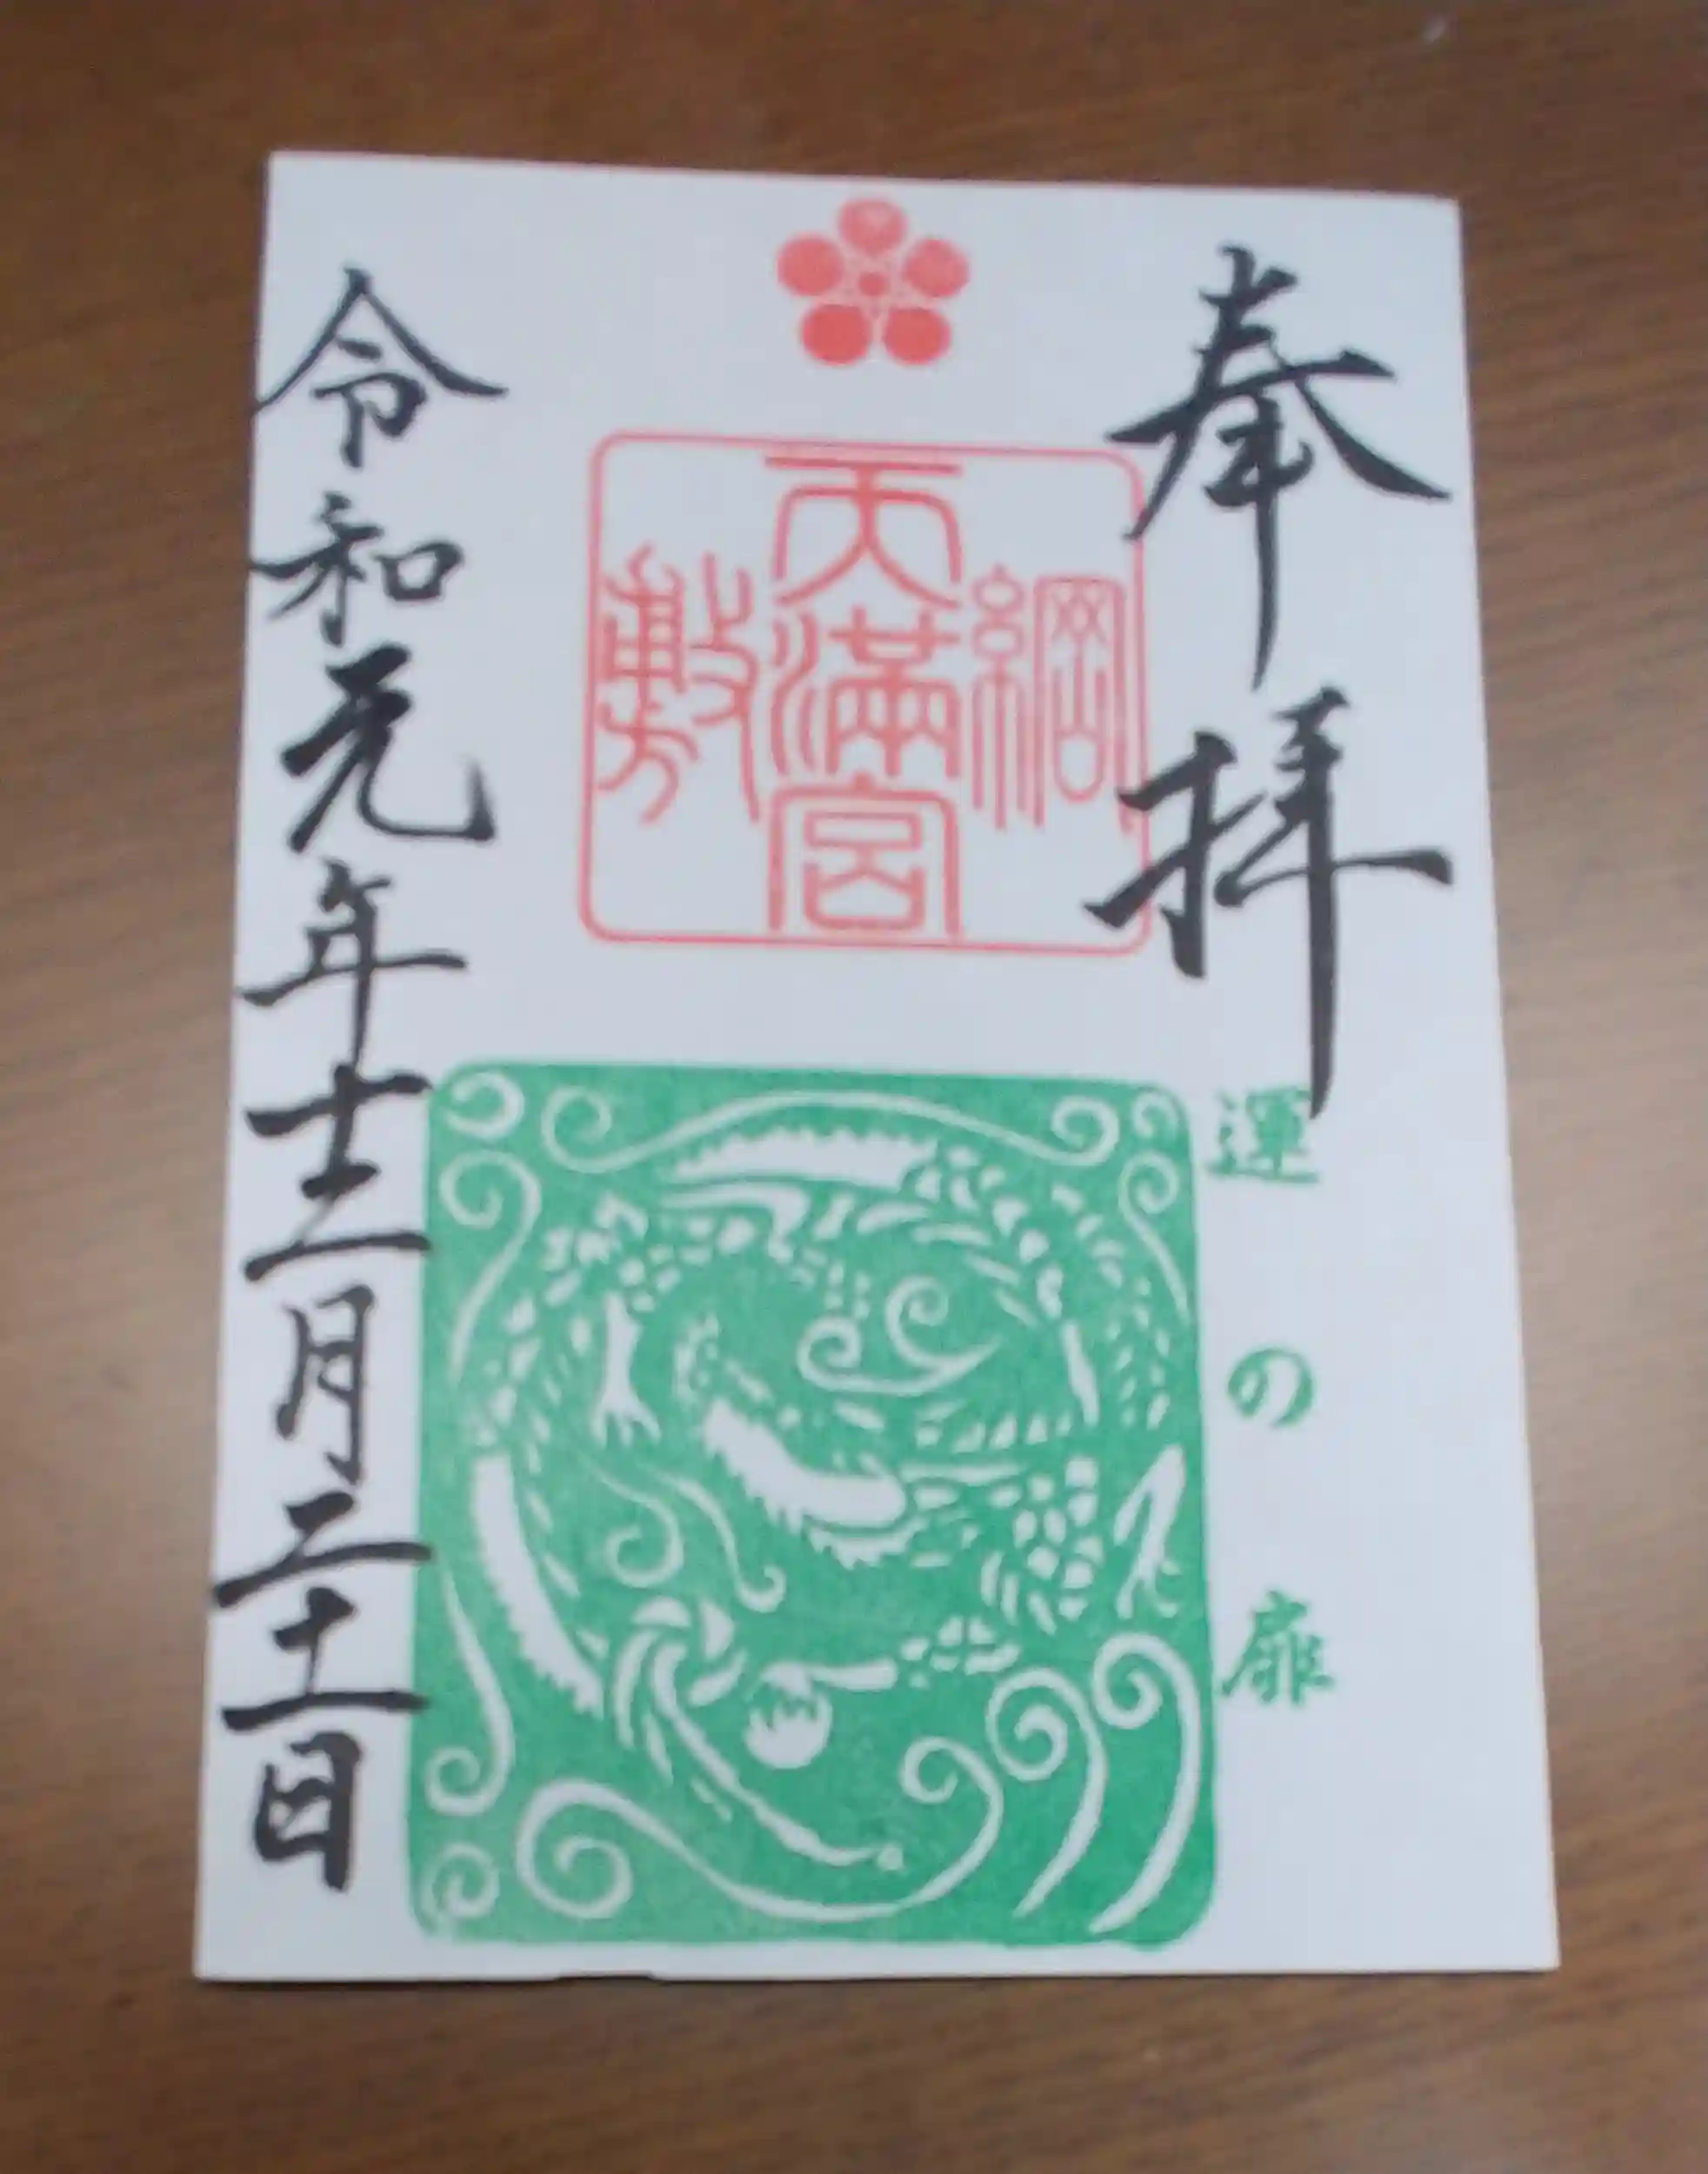 奉拝
運の扉
綱敷天満宮
令和元年十二月二十一日